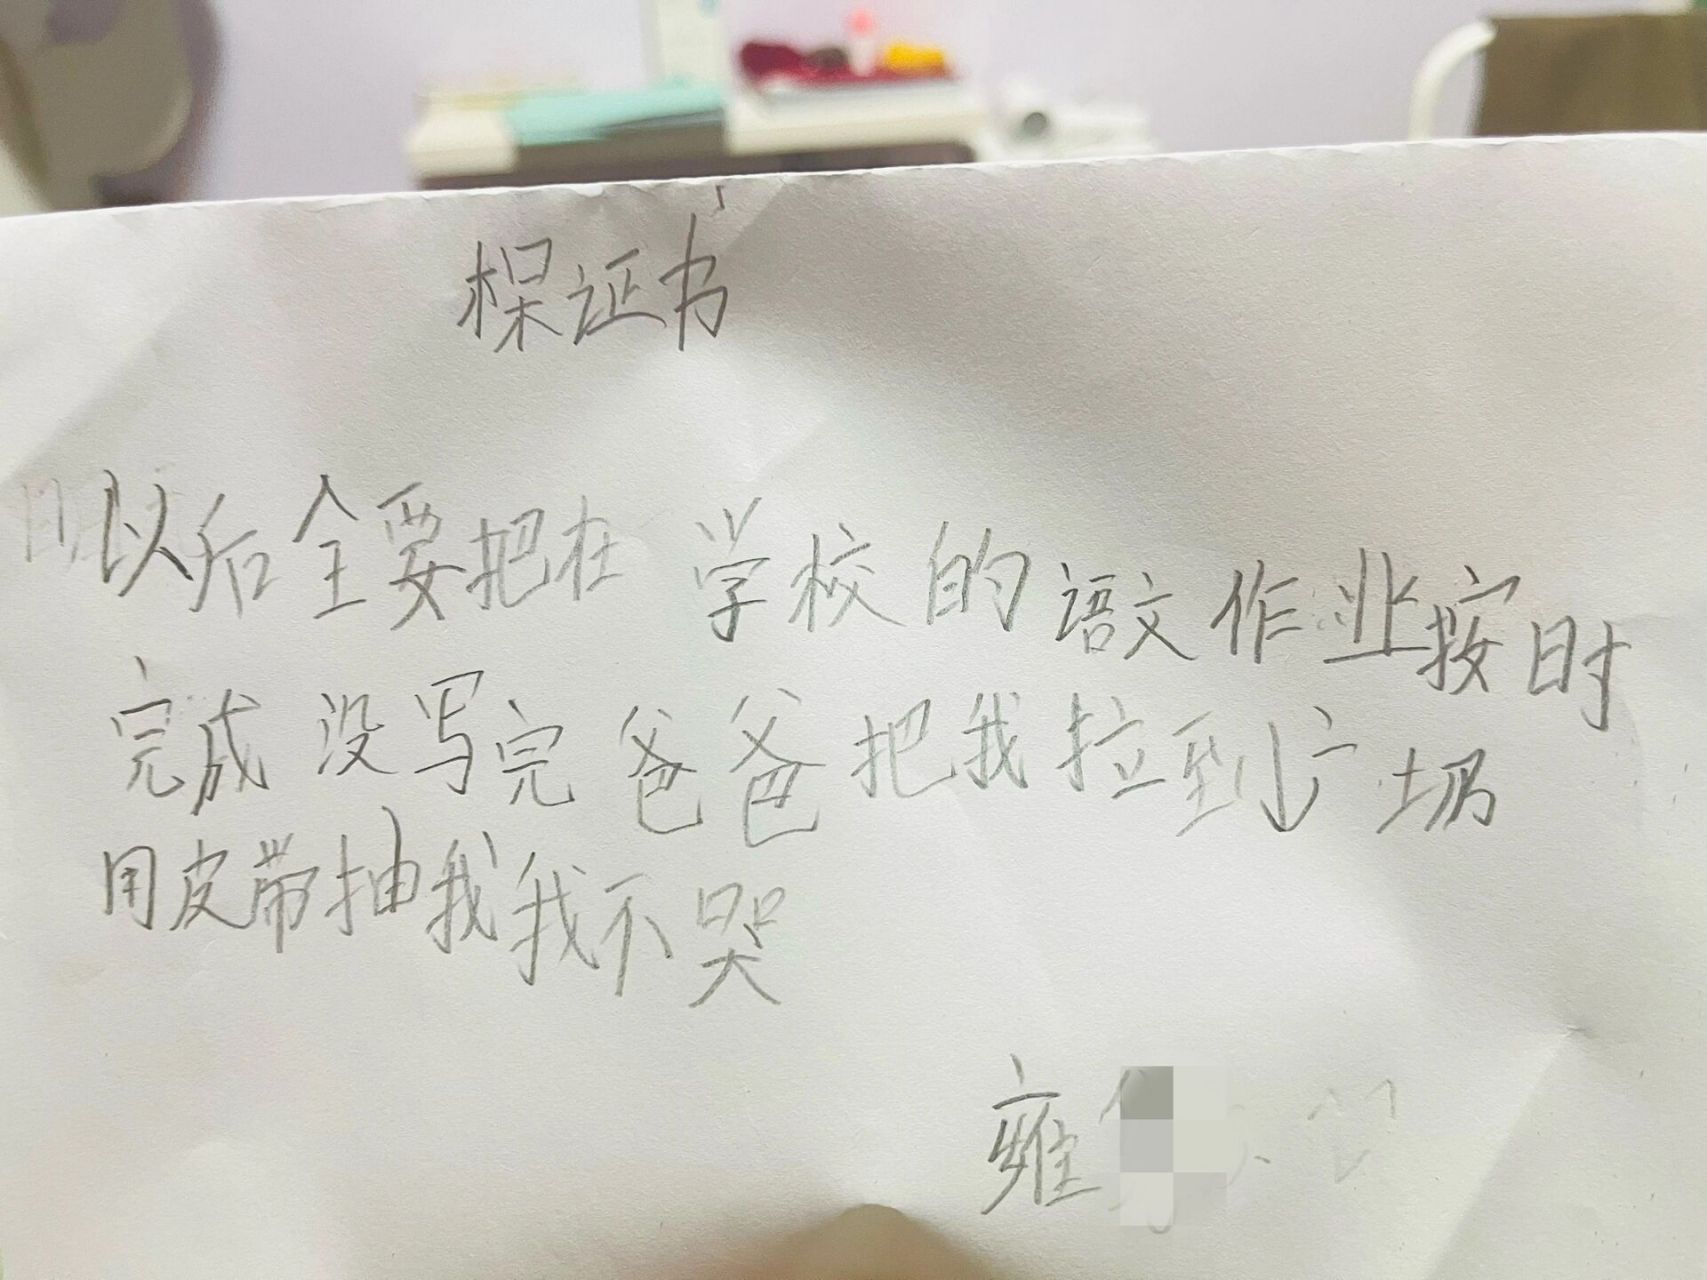 保证书
以后全要把在学校的语文作业按时
完成没写完爸爸把我拉到广场
用皮带抽我我不哭
雍